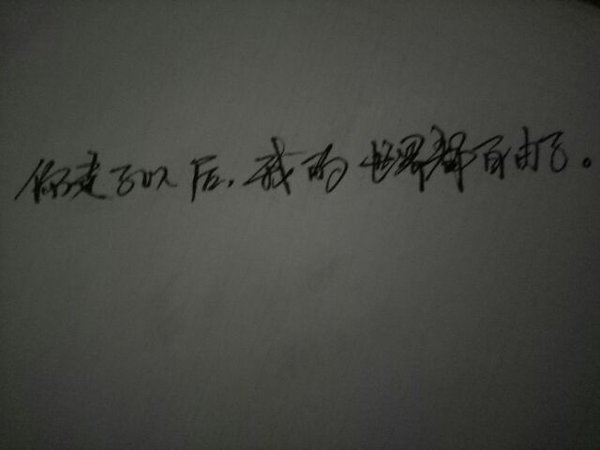 你走了以后,我的世界都自由了。